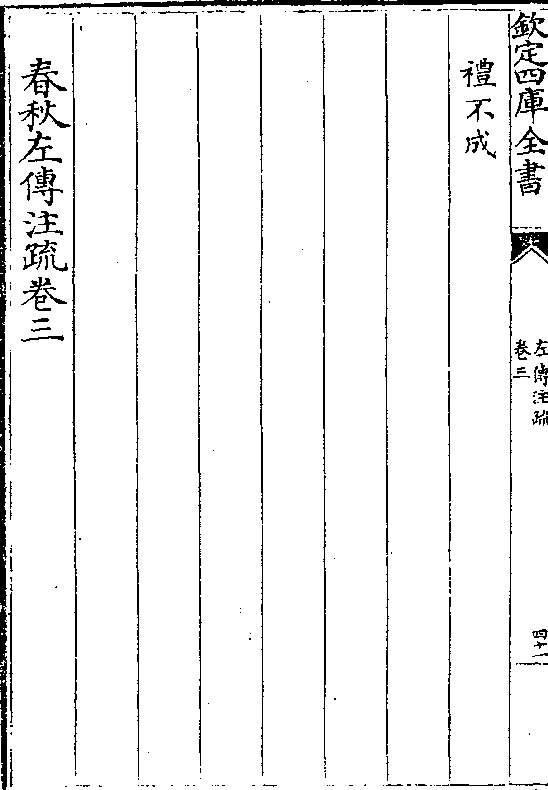 欽定四庫全書
左傳注疏
卷三
四十一
禮不成
春秋左傳注疏卷三